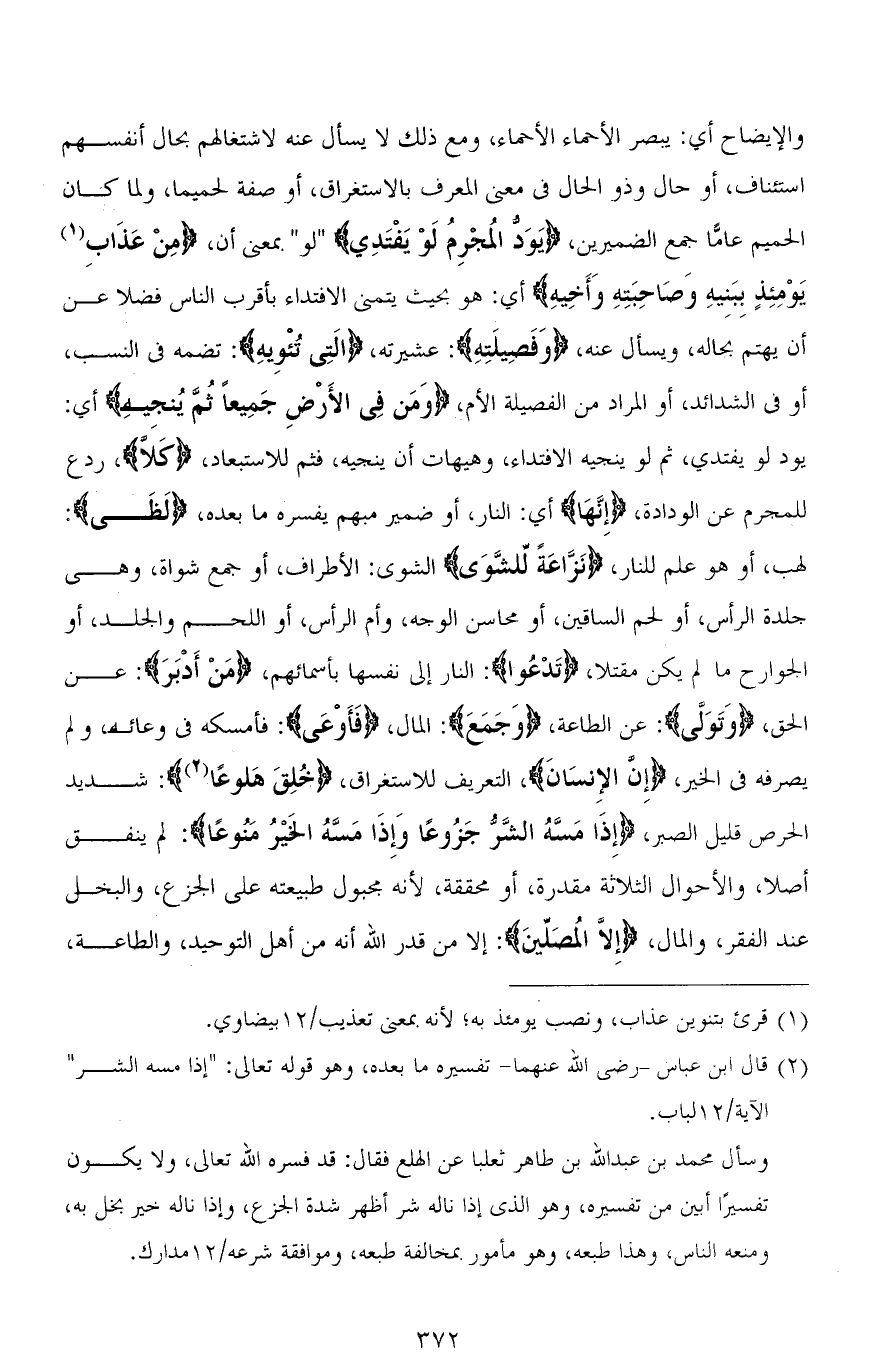 والإيضاح أي: يبصر الأحماء الأحماء، ومع ذلك لا يسأل عنه لاشتغالهم بحال أنفسهم
استئناف، أو حال وذو الحال فى معنى المعرف بالاستغراق، أو صفة لحميما، ولما كان
الحميم عامًّا جمع الضميرين، ﴿يَوَدُّ المُجْرِمُ لَوْ يَفْتَدِي﴾ "لو" بمعنى أن، ﴿مِنْ عَذَابِ(١)
يَوْمِئِذٍ بِبَنِيهِ وَصَاحِبَتِهِ وَأَخِيهِ﴾ أي: هو بحيث يتمنى الافتداء بأقرب الناس فضلا عن
أن يهتم بحاله، ويسأل عنه، ﴿وَفَصِيلَتِهِ﴾: عشيرته، ﴿الَتِى تُئْوِيهِ﴾: تضمه فى النسب،
أو فى الشدائد، أو المراد من الفصيلة الأم، ﴿وَمَن فِى الأَرْضِ جَمِيعاً ثُمَّ يُنجِيهِ﴾ أي:
يود لو يفتدي، ثم لو ينجيه الافتداء، وهيهات أن ينجيه، فثم للاستبعاد، ﴿كَلاَّ﴾، ردع
للمجرم عن الودادة، ﴿إِنَّهَا﴾ أي: النار، أو ضمير مبهم يفسره ما بعده، ﴿لَظَى﴾:
لهب، أو هو علم للنار، ﴿نَزَّاعَةً لِّلشَّوَى﴾ الشوى: الأطراف، أو جمع شواة، وهى
جلدة الرأس، أو لحم الساقين، أو محاسن الوجه، وأم الرأس، أو اللحم والجلد، أو
الجوارح ما لم يكن مقتلا، ﴿تَدْعُوا﴾: النار إلى نفسها بأسمائهم، ﴿مَنْ أَدْبَرَ﴾: عن
الحق، ﴿وَتَوَلَّى﴾: عن الطاعة، ﴿وَجَمَعَ﴾: المال، ﴿فَأَوْعَى﴾: فأمسكه فى وعائه، و لم
يصرفه فى الخير، ﴿إِنَّ الإِنسَانَ﴾، التعريف للاستغراق، ﴿خُلِقَ هَلوعًا(٢)﴾: شديد
الحرص قليل الصبر، ﴿إِذَا مَسَّهُ الشَّرُّ جَزُوعًا وَإِذَا مَسَّهُ الخَيْرُ مَنُوعًا﴾: لم ينفق
أصلا، والأحوال الثلاثة مقدرة، أو محققة، لأنه مجبول طبيعته على الجزع، والبخل
عند الفقر، والمال، ﴿إِلاَّ المُصَلِّينَ﴾: إلا من قدر الله أنه من أهل التوحيد، والطاعة،
(١) قرئ بتنوين عذاب، ونصب يومئذ به؛ لأنه بمعنى تعذيب/١٢بيضاوي.
(٢) قال ابن عباس -رضى الله عنهما- تفسيره ما بعده، وهو قوله تعالى: "إذا مسه الشر"
الآية/١٢لباب.
وسأل محمد بن عبدالله بن طاهر ثعلبا عن الهلع فقال: قد فسره الله تعالى، ولا يكون
تفسيرًا أبين من تفسيره، وهو الذى إذا ناله شر أظهر شدة الجزع، وإذا ناله خير بخل به،
ومنعه الناس، وهذا طبعه، وهو مأمور بمخالفة طبعه، وموافقة شرعه/١٢مدارك.
٣٧٢